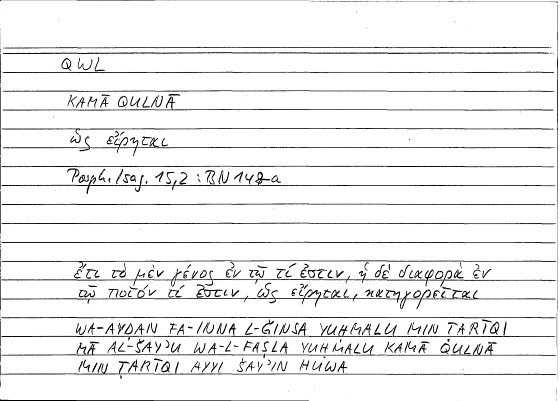 QWL
KAMĀ QULNĀ
ὡς εἴρηται
Porph. Isag. 15,2 : BN 148a
ἔτι τὸ μὲν γένος ἐν τῷ τί ἐστιν, ἡ δὲ διαφορὰ ἐν
τῷ ποῖόν τί ἐστιν, ὡς εἴρηται, κατηγορεῖται
WA-AYḌAN FA-INNA L-ǦINSA YUḤMALU MIN ṬARĪQI
MĀ AL-ŠAYʾU WA-L-FAṢLA YUḤMALU KAMĀ QULNĀ
MIN ṬARĪQI AYYI ŠAYʾIN HUWA